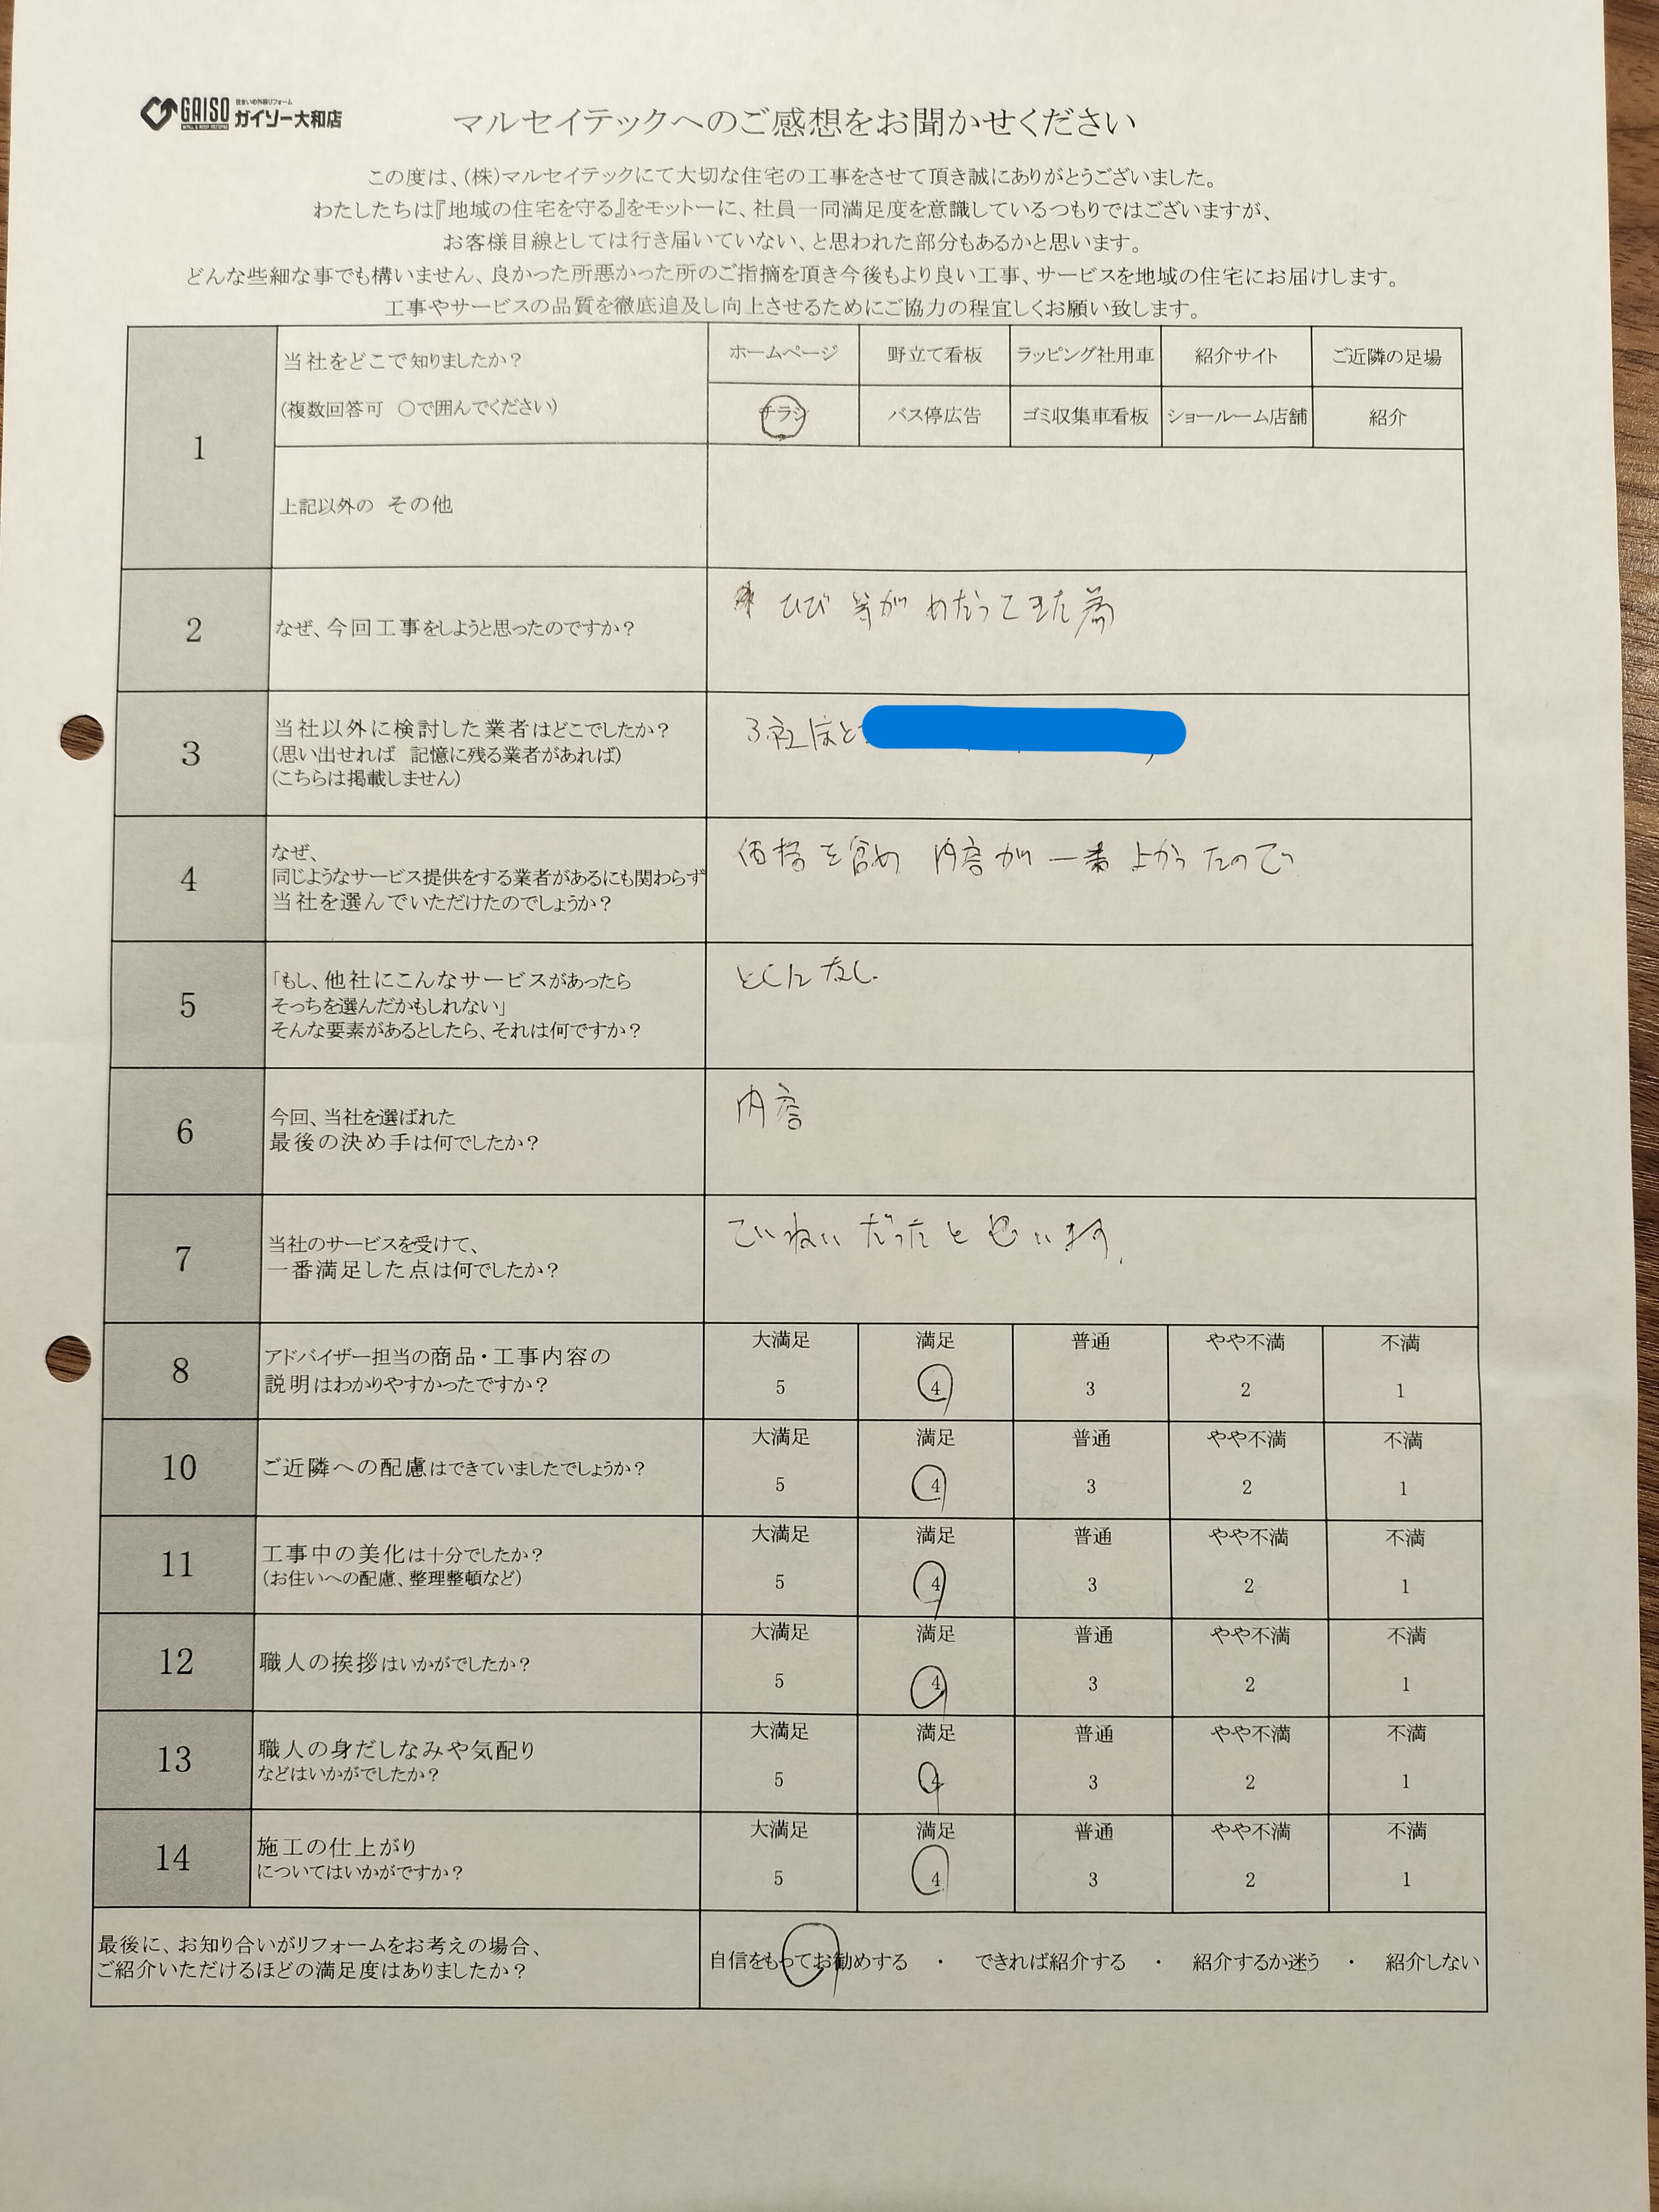 GAISO
WALL & ROOF REFORM
住まいの外装リフォーム
ガイソー大和店
マルセイテックへのご感想をお聞かせください
この度は、(株)マルセイテックにて大切な住宅の工事をさせて頂き誠にありがとうございました。
わたしたちは『地域の住宅を守る』をモットーに、社員一同満足度を意識しているつもりではございますが、
お客様目線としては行き届いていない、と思われた部分もあるかと思います。
どんな些細な事でも構いません、良かった所悪かった所のご指摘を頂き今後もより良い工事、サービスを地域の住宅にお届けします。
工事やサービスの品質を徹底追及し向上させるためにご協力の程宜しくお願い致します。
1
当社をどこで知りましたか？
(複数回答可 ○で囲んでください)
ホームページ 野立て看板 ラッピング社用車 紹介サイト ご近隣の足場
チラシ バス停広告 ゴミ収集車看板 ショールーム店舗 紹介
上記以外の その他
2
なぜ、今回工事をしようと思ったのですか？
ひび等がめだってきた為
3
当社以外に検討した業者はどこでしたか？
(思い出せれば 記憶に残る業者があれば)
(こちらは掲載しません)
3社ほど
4
なぜ、
同じようなサービス提供をする業者があるにも関わらず
当社を選んでいただけたのでしょうか？
価格を含め内容が一番よかったので
5
「もし、他社にこんなサービスがあったら
そっちを選んだかもしれない」
そんな要素があるとしたら、それは何ですか？
とくになし.
6
今回、当社を選ばれた
最後の決め手は何でしたか？
内容
7
当社のサービスを受けて、
一番満足した点は何でしたか？
ていねいだったと思います.
8
アドバイザー担当の商品・工事内容の
説明はわかりやすかったですか？
大満足 満足 普通 やや不満 不満
5 4 3 2 1
10
ご近隣への配慮はできていましたでしょうか？
大満足 満足 普通 やや不満 不満
5 4 3 2 1
11
工事中の美化は十分でしたか？
(お住いへの配慮、整理整頓など)
大満足 満足 普通 やや不満 不満
5 4 3 2 1
12
職人の挨拶はいかがでしたか？
大満足 満足 普通 やや不満 不満
5 4 3 2 1
13
職人の身だしなみや気配り
などはいかがでしたか？
大満足 満足 普通 やや不満 不満
5 4 3 2 1
14
施工の仕上がり
についてはいかがですか？
大満足 満足 普通 やや不満 不満
5 4 3 2 1
最後に、お知り合いがリフォームをお考えの場合、
ご紹介いただけるほどの満足度はありましたか？
自信をもってお勧めする ・ できれば紹介する ・ 紹介するか迷う ・ 紹介しない